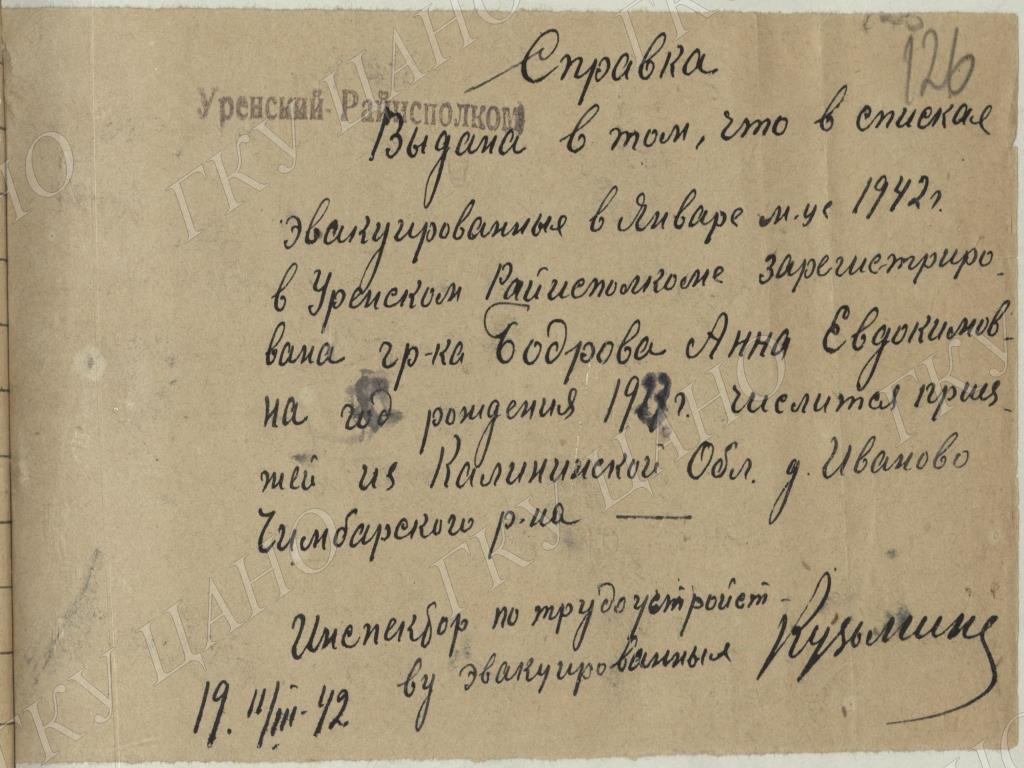 126
Справка
Уренский Райисполком
Выдана в том, что в списках
эвакуированных в Январе м-це 1942 г.
в Уренском Райисполкоме зарегистриро-
вана гр-ка Бодрова Анна Евдокимов-
на год рождения 1923 г. числится приез-
жей из Калининской Обл. д. Иваново
Чимбарского р-на —
Инспектор по трудоустройст-
ву эвакуированных Кузьмина
19. 11/III-42
ГКУ ЦАНО